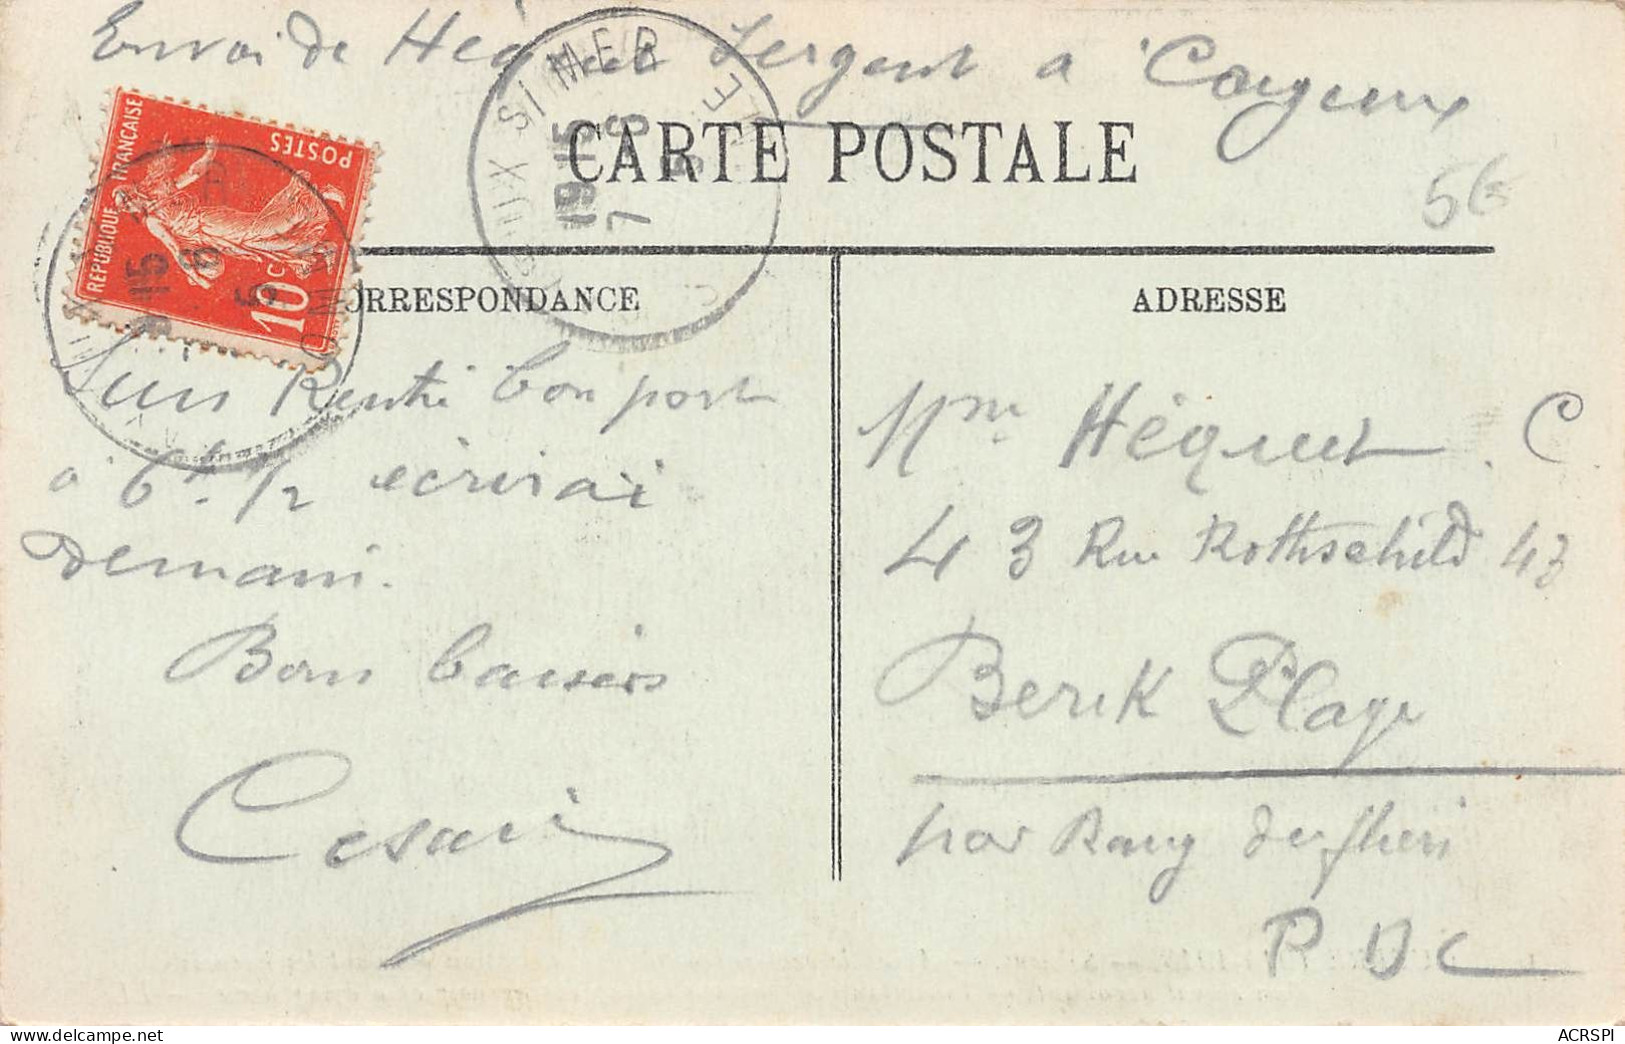 Envoi de Héquet Sergent a Cayeux
CARTE POSTALE
5€
RÉPUBLIQUE FRANÇAISE
POSTES
10 c
CAYEUX S/ MER
19 15
7 6
CORRESPONDANCE
ADRESSE
Suis Rentré bon port
a 6h 1/2 écrirai
Demain.
Bons baisers
Cesaire
Mme Héquet. C.
43 Rue Rothschild 43
Berck Plage
par Rang du fliers
P D C
ACRSPI